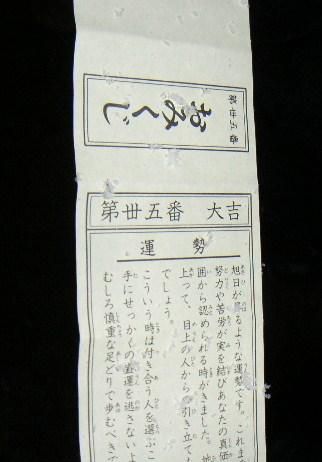 第丗五番
おみくじ
第丗五番　大吉
運勢
旭日が昇るような運勢です。これま
努力や苦労が実を結びあなたの真価
囲から認められる時がきました。地
上って、目上の人から引き立て
でしょう。
こういう時は付き合う人を選ぶこ
手にせっかくの運を逃さないよ
むしろ慎重な足どりで歩むべきで